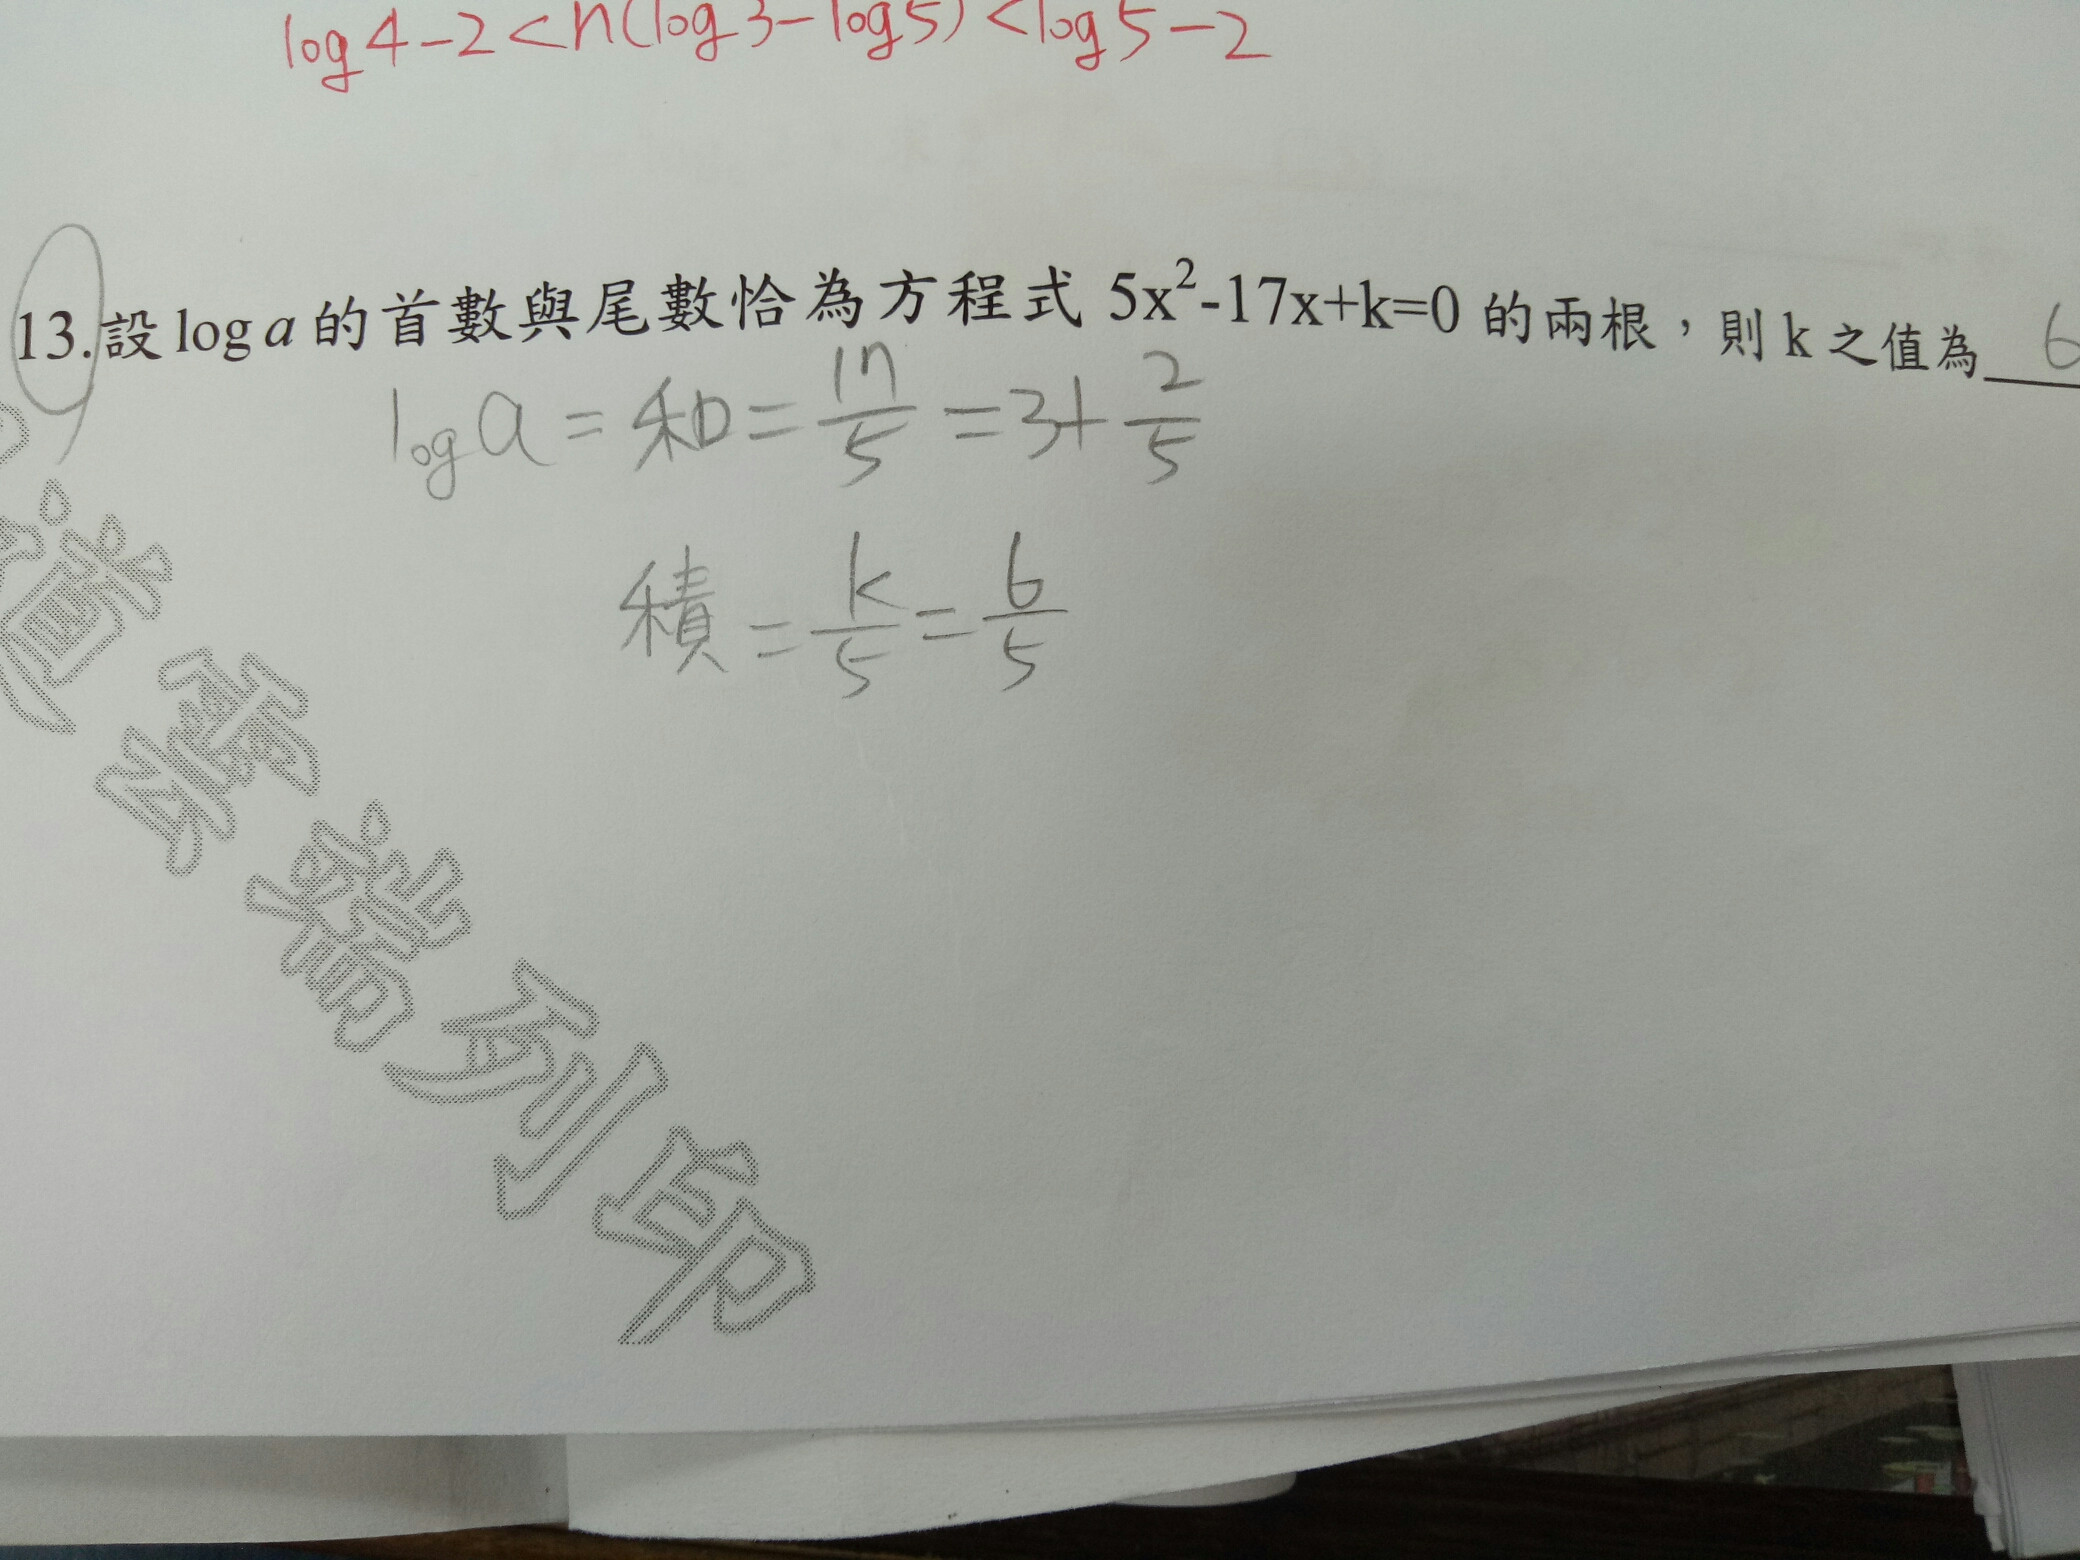 log4-2<n(log3-log5)<log5-2
13.設 log a 的首數與尾數恰為方程式 5x²-17x+k=0 的兩根，則 k 之值為 6
log a = 和 = 17/5 = 3+ 2/5
積 = k/5 = 6/5